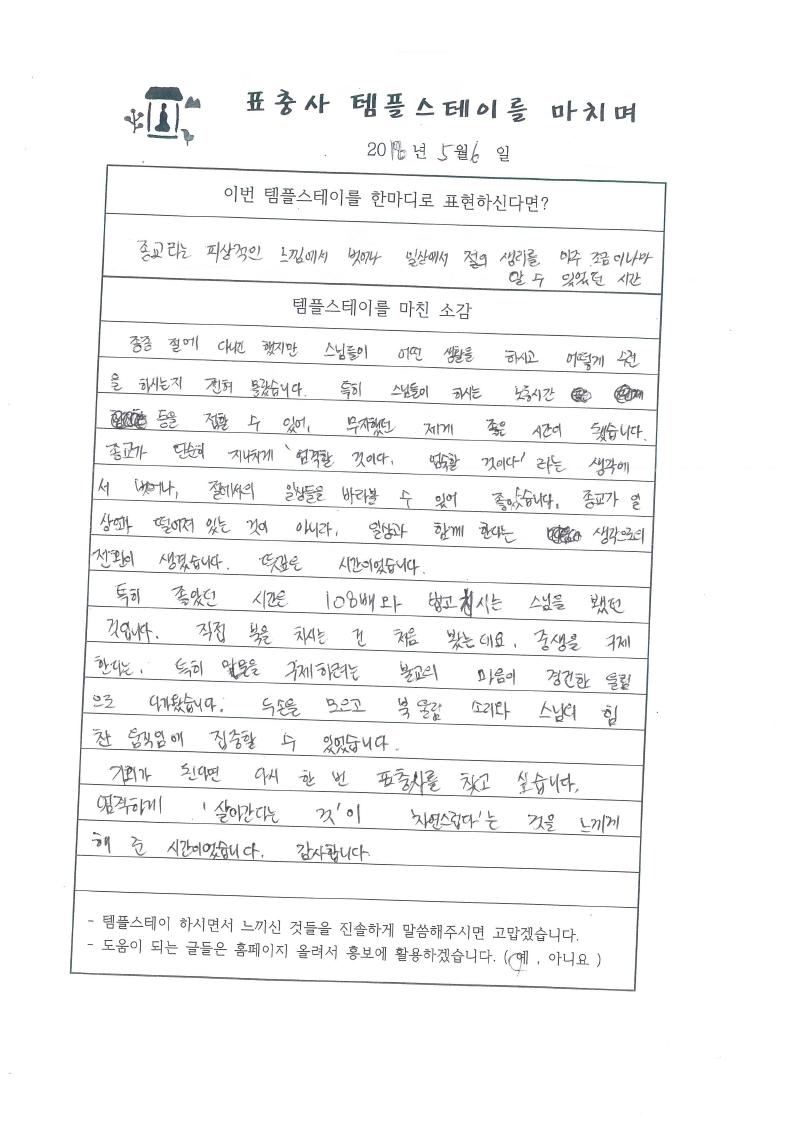 표충사 템플스테이를 마치며
2018년 5월 6일
이번 템플스테이를 한마디로 표현하신다면?
종교라는 피상적인 느낌에서 벗어나 일상에서 절의 생리를 아주 조금이나마
알 수 있었던 시간
템플스테이를 마친 소감
종종 절에 다니긴 했지만 스님들이 어떤 생활을 하시고 어떻게 수련
을 하시는지 전혀 몰랐습니다. 특히 스님들이 하시는 노동시간
등을 접할 수 있어, 무지했던 제게 좋은 시간이 됐습니다.
종교가 단순히 지나치게 '엄격할 것이다, 엄숙할 것이다' 라는 생각에
서 벗어나, 절에서의 일상들을 바라볼 수 있어 좋았습니다. 종교가 일
상과 떨어져 있는 것이 아니라, 일상과 함께 한다는 생각으로의
전환이 생겼습니다. 뜻깊은 시간이었습니다.
특히 좋았던 시간은 108배와 법고 치시는 스님을 뵀던
것입니다. 직접 북을 치시는 건 처음 봤는데요, 중생을 구제
한다는, 특히 을 구제하려는 불교의 마음이 경건한 울림
으로 다가왔습니다. 두손을 모으고 북 울림 소리와 스님의 힘
찬 움직임에 집중할 수 있었습니다.
기회가 된다면 다시 한 번 표충사를 찾고 싶습니다.
엄격하게 '살아간다는 것'이 '자연스럽다'는 것을 느끼게
해 준 시간이었습니다. 감사합니다.
- 템플스테이 하시면서 느끼신 것들을 진솔하게 말씀해주시면 고맙겠습니다.
- 도움이 되는 글들은 홈페이지 올려서 홍보에 활용하겠습니다. ( 예 , 아니요 )